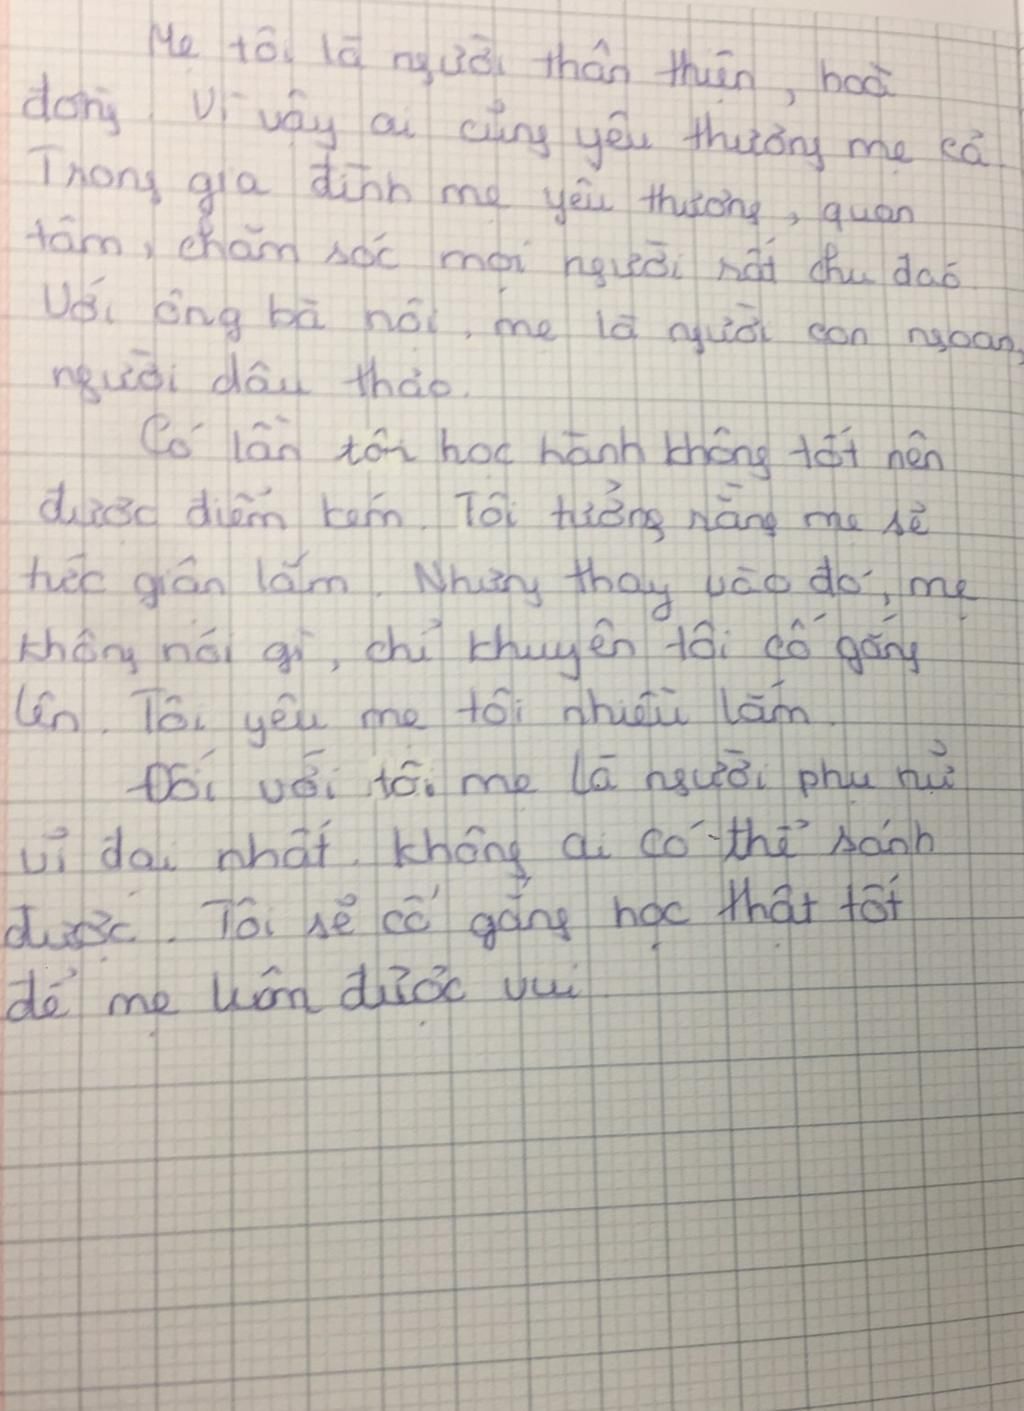 Mẹ tôi là người thân thiện, hoà
đồng. Vì vậy ai cũng yêu thương mẹ cả.
Trong gia đình mẹ yêu thương, quan
tâm, chăm sóc mọi người rất chu đáo.
Với ông bà nội, mẹ là người con ngoan,
người dâu thảo.
Có lần tôi học hành không tốt nên
được điểm kém. Tôi tưởng rằng mẹ sẽ
tức giận lắm. Nhưng thay vào đó, mẹ
không nói gì, chỉ khuyên tôi cố gắng
lên. Tôi yêu mẹ tôi nhiều lắm.
Đối với tôi mẹ là người phụ nữ
vĩ đại nhất. không ai có thể sánh
được. Tôi sẽ cố gắng học thật tốt
để mẹ luôn được vui